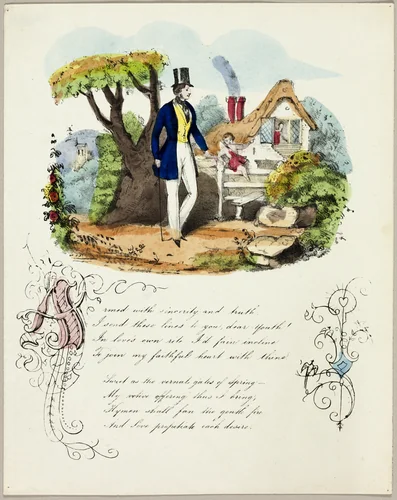 Armed with sincerity and truth
I send these lines to you, dear Youth!
In love's own rite I'd fain incline
To join my faithful heart with thine!
Sweet as the vernal gales of spring—
My votive offering thus I bring,
Hymen shall fan the gentle fire
And Love propitiate each desire.